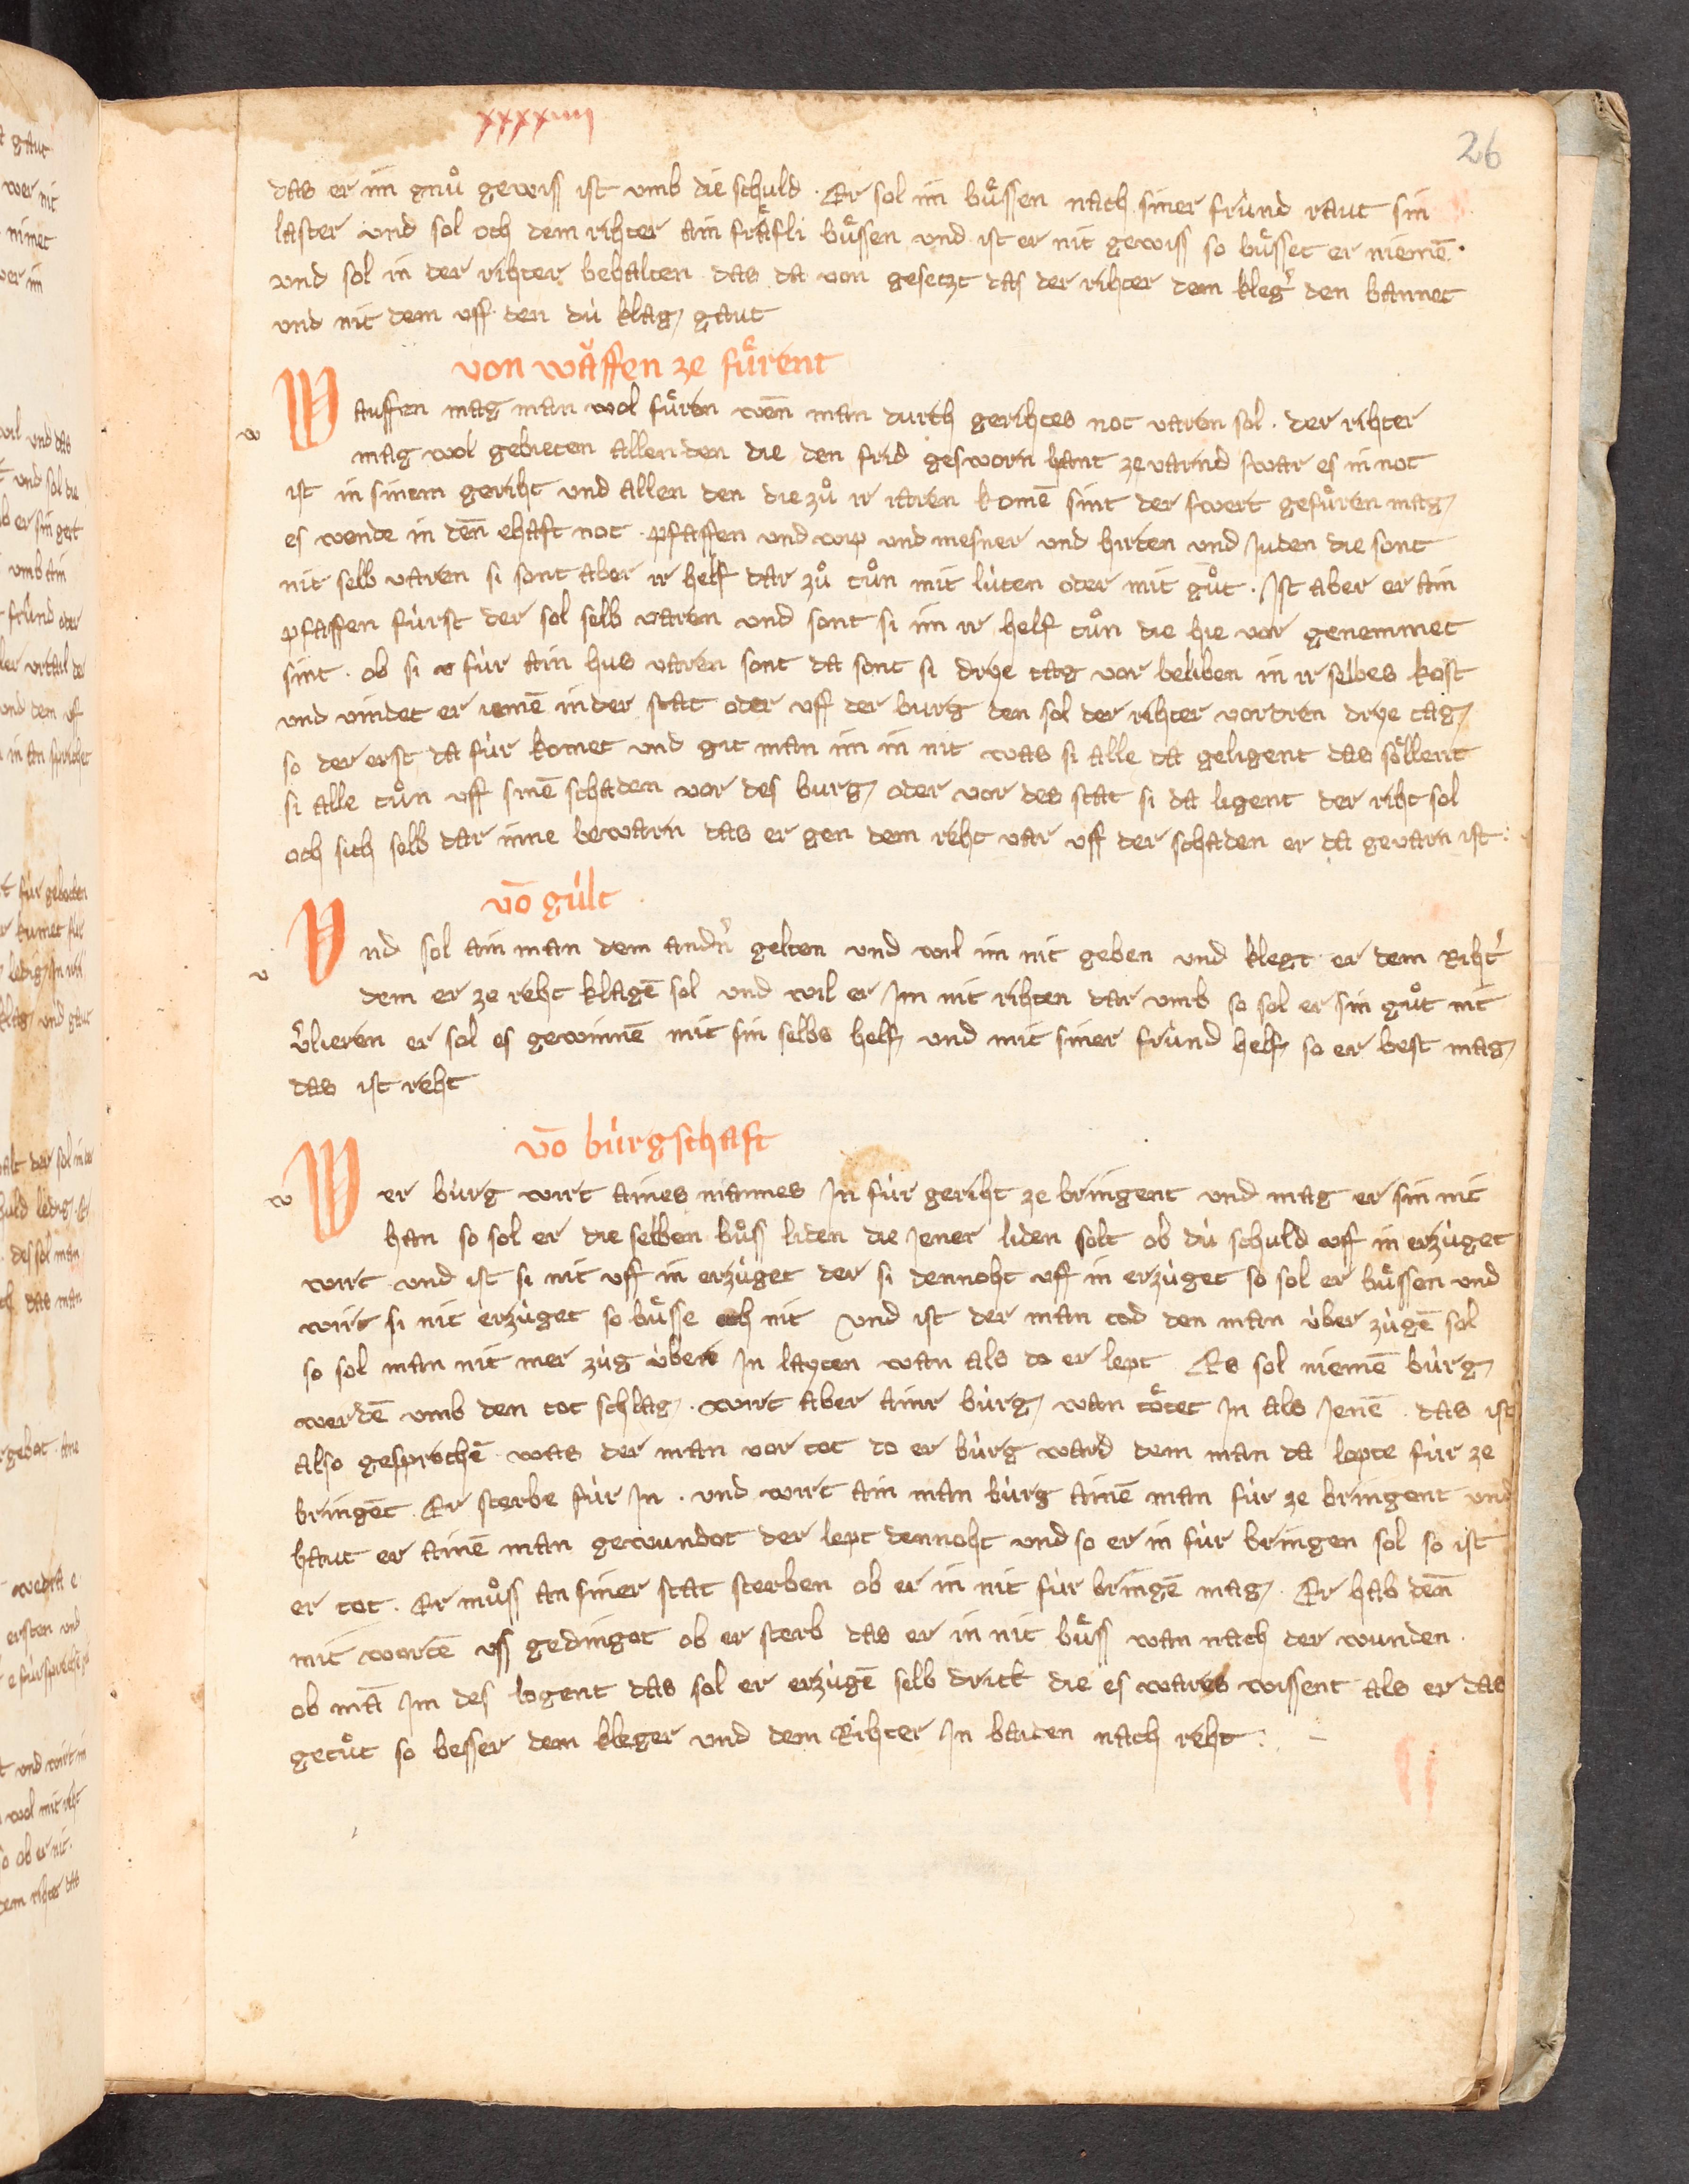 xxxxiiii
26
das er im gnuͦ gewiss ist vmb die schuld · Er sol im buͤssen nach siner fruͥnd raut sin
laster vnd sol och dem rihter ain fraͤfli buͤssen vnd ist er nit gewiss so buͤsset er niemē ·
vnd sol in der rihter behalten das da von gesetzt das der rihter dem kleg᷑ den bannet
vnd nit dem vff den duͥ klag gaut
von waͧffen ze fuͤrent
w
Wauffen mag man wol fuͤren wen̄ man durch gerihtes not varen sol · der rihter
mag wol gebieten allen den die den frid gesworn hant ze varnd swar es in not
ist in sinem geriht vnd allen den die zuͦ ir iaren komē sint der swert gefuͤren mag
es wende in den̄ ehaft not · pfaffen vnd wip vnd mesner vnd hirten vnd Juden die sont
nit selb varen si sont aber ir helf dar zuͦ tuͦn mit luͥten oder mit guͦt · Ist aber er ain
pfaffen fuͥrst der sol selb varen vnd sont si im ir helf tuͦn die hie vor genemmet
sint · ob si fuͥr ain hus varen sont da sont si drye tag vor beliben in ir selbes kost
vnd vindet er iemē in der stat oder vff der burg den sol der rihter vordren drye tag
so der erst da fuͥr komet vnd git man im in nit was si alle da geligent das soͤllent
si alle tuͦn vff sinē schaden vor des burg oder vor des stat si da ligent der riht sol
och sich selb dar inne bewarn das er gen dem reht var vff der schaden er da gevarn ist :
vō guͥlt
v
Vnd sol ain man dem andn᷑ gelten vnd wil im nit geben vnd klegt er dem Riht᷑
dem er ze reht klagē sol vnd wil er Jm nit rihten dar vmb so sol er sin guͦt nit
v᷑lieren er sol es gewinnē mit sin selbs helf vnd mit siner fruͥnd helf so er best mag
das ist reht
vō buͥrgschaft
w
Wer buͥrg wirt aines mannes Jn fuͥr geriht ze bringent vnd mag er sin nit
han so sol er die selben buͦss liden die Jener liden solt ob duͥ schuld vff in erzuͥget
wirt vnd ist si nit vff in erzuͥget der si dennoht vff in erzuͥget so sol er buͤssen vnd
wirt si nit erzuͥget so buͤsse och nit vnd ist der man tod den man uͥber zuͥgē sol
so sol man nit mer zuͥg uͥber Jn layten wan als do er lept Es sol niemē buͥrg
werdē vmb den tot schlag · wirt aber ainr buͥrg wan toͤtet Jn als Jenē das ist
also gesprochē was der man vor tot do er buͥrg ward dem man da lopte fuͥr ze
bringēt Er sterbe fuͥr Jn · vnd wirt ain man buͥrg ainē man fuͥr ze bringent vnd
haut er ainē man gewundot der lept dennoht vnd so er in fuͥr bringen sol so ist
er tot · Er muͦss an siner stat sterben ob er in nit fuͥr bringē mag · Er hab den̄
mit wortē vss gedingot ob er sterb das er in nit buͤss wan nach der wunden ·
ob mā Jm des logent das sol er erzuͥgē selb dritt die es wares wissent als er das
getuͦt so besser dem kleger vnd dem Rihter Jn baiden nach reht :